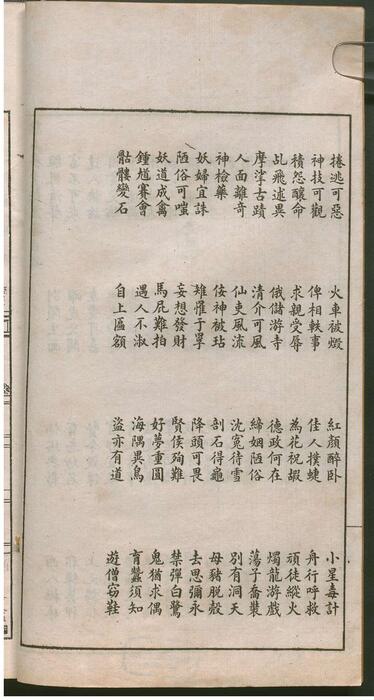 捲逃可惡 火車被燬 紅顏醉卧 小星毒計
神技可觀 俾相軼事 佳人撲蜨 舟行呼救
積怨釀命 求親受辱 為花祝嘏 頑徒縱火
乩飛述異 俄儲游寺 德政何在 燭龍游戲
摩挲古蹟 清介可風 締姻陋俗 蕩子喬裝
人面離奇 仙吏風流 沈冤待雪 別有洞天
神檢藥 侫神被玷 剖石得龜 母豬脫殼
妖婦宜誅 雉罹于罦 降頭可畏 去思彌永
陋俗可嗤 妄想發財 賢侯殉難 禁彈白鷺
妖道成禽 馬屁難拍 好夢重圓 鬼猶求偶
鍾馗賽會 遇人不淑 海隅異鳥 育蠶須知
骷髏變石 自上匾額 盜亦有道 遊僧竊鞋